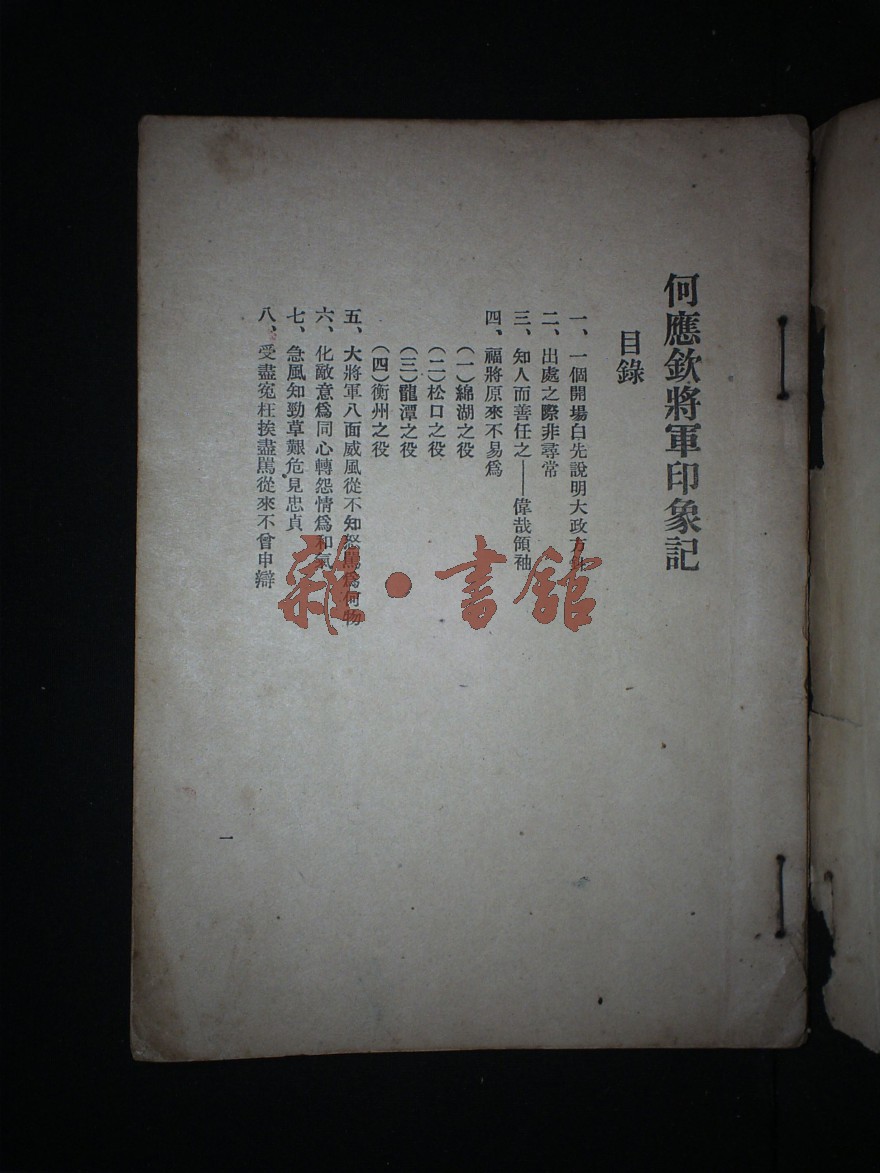 何應欽將軍印象記
目錄
一、一個開場白先說明大政方針
二、出處之際非尋常
三、知人而善任之——偉哉領袖
四、福將原來不易為
(一)綿湖之役
(二)松口之役
(三)龍潭之役
(四)衡州之役
五、大將軍八面威風從不知怒罵為何物
六、化敵意爲同心轉怨情爲和氣
七、急風知勁草艱危見忠貞
八、受盡寃枉挨盡罵從來不曾申辯
一
雜·書館